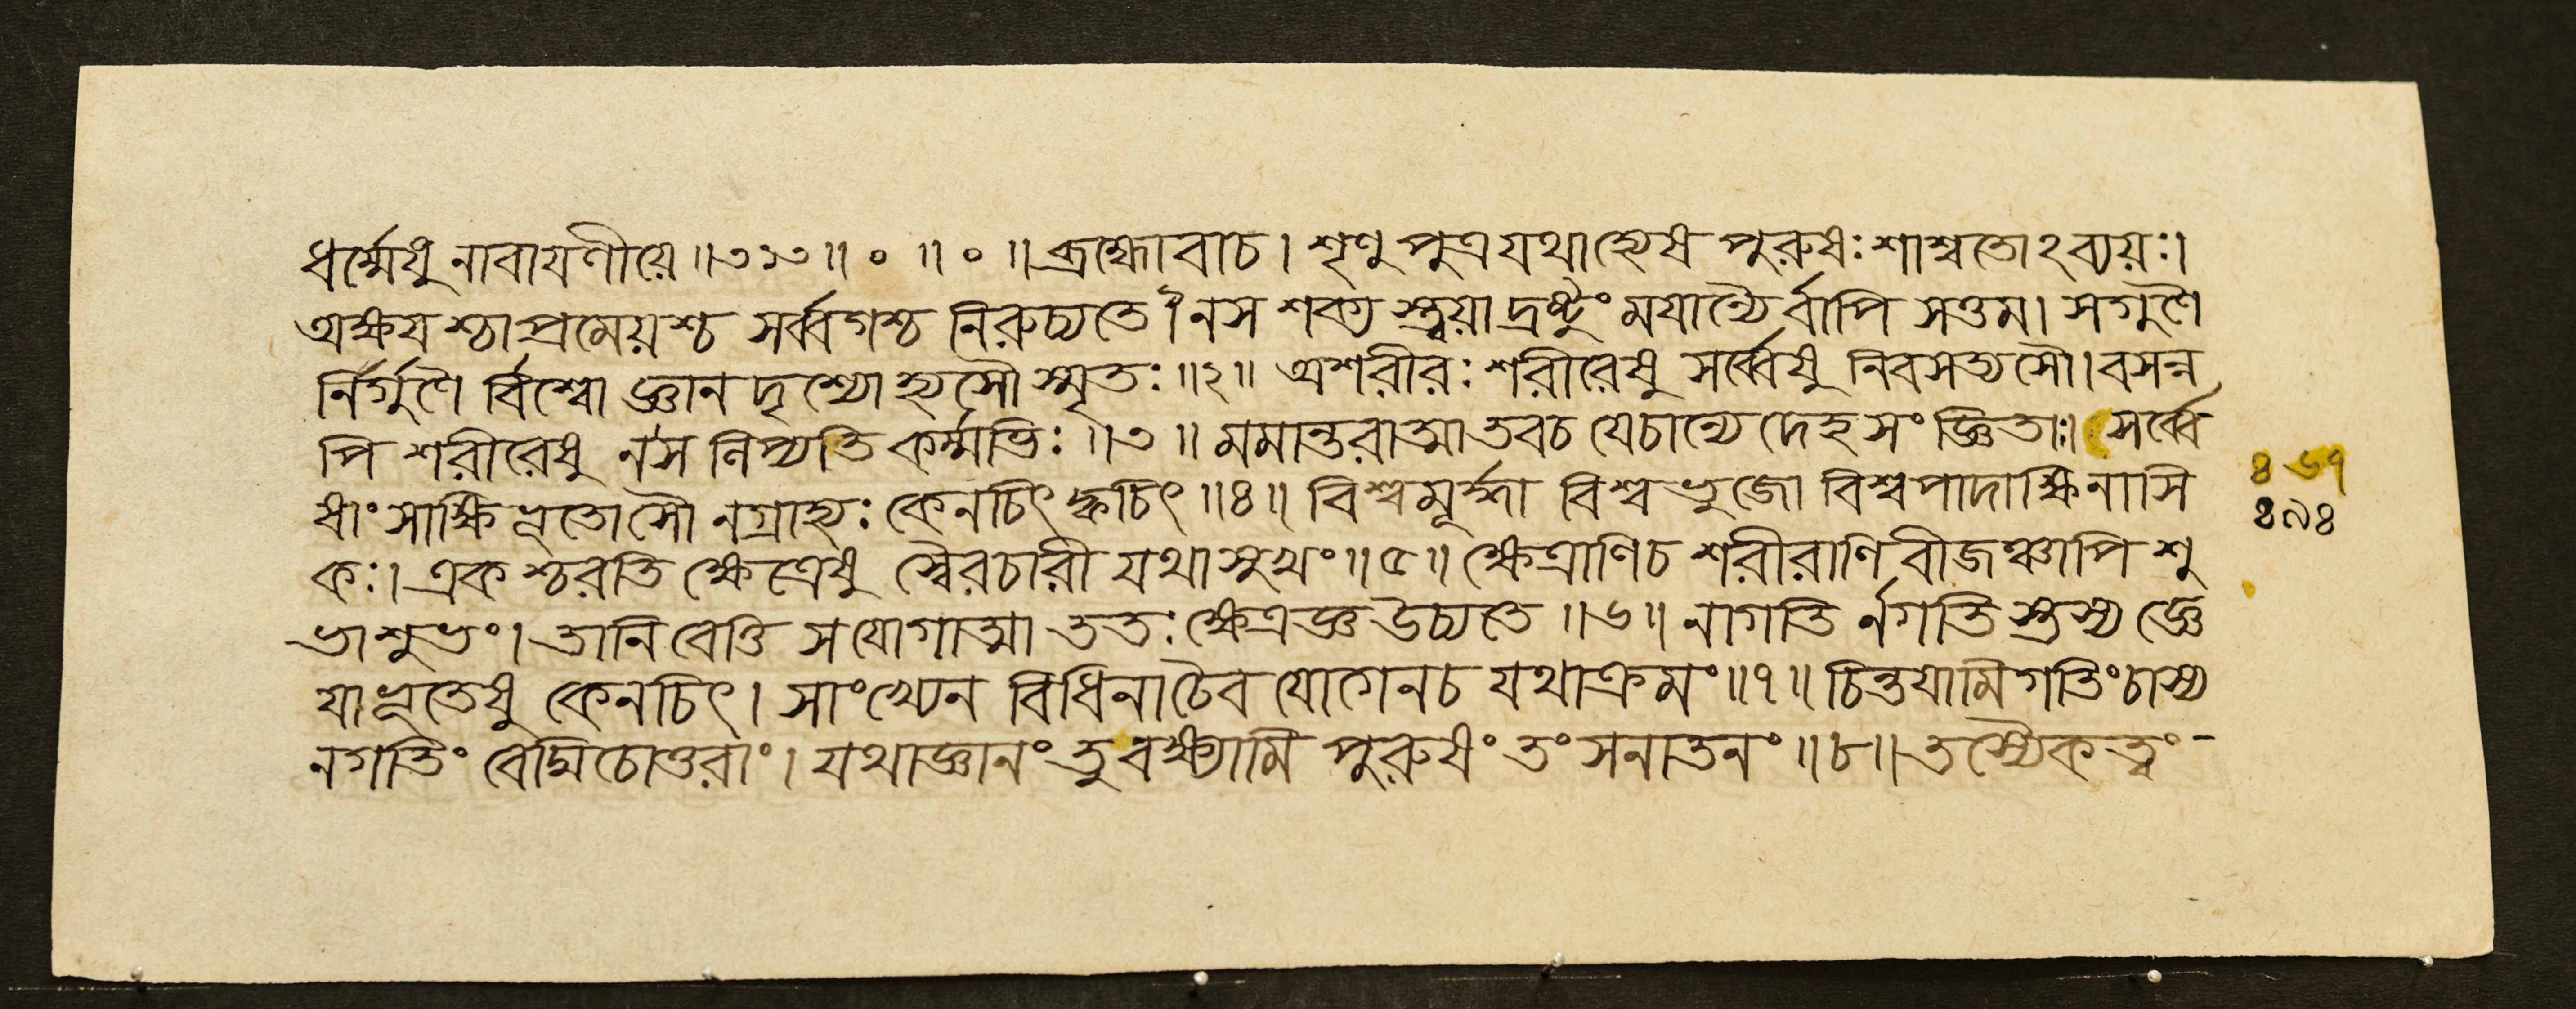 ধর্ম্মেষু নাবাযণীয়ে ॥৩১৩॥ ০ ॥ ০ ॥ ব্রহ্মোবাচ। শৃণু পুত্র যথাহ্যেষ পুরুষঃ শাশ্বতোঽব্যয়ঃ।
অক্ষযশ্চাপ্রমেয়শ্চ সর্ব্বগশ্চ নিরুচ্যতে। নস শক্য স্ত্বয়া দ্রষ্টুং মযান্যৈ র্বাপি সত্তম। সগুণৈ
র্নির্গুণৈ র্বিশ্বো জ্ঞানদৃশ্যোহ্যসৌ স্মৃতঃ ॥২॥ অশরীরঃ শরীরেষু সর্ব্বেষু নিবসত্যসৌ। বসন্ন
পি শরীরেষু নস নিপ্যতি কর্ম্মভিঃ ॥৩॥ মমান্তরাত্মা তবচ যেচান্যে দেহসংজ্ঞিতাঃ। সর্ব্বে
ষাং সাক্ষিভূতোসৌ নগ্রাহ্যঃ কেনচিৎ ক্বচিৎ ॥৪॥ বিশ্বমূর্দ্ধা বিশ্বভুজো বিশ্বপাদাক্ষিনাসি
কঃ। একশ্চরতি ক্ষেত্রেষু স্বৈরচারী যথাসুখং ॥৫॥ ক্ষেত্রাণিচ শরীরাণি বীজঞ্চাপি শু
ভাশুভং। তানি বেত্তি স যোগাত্মা ততঃ ক্ষেত্রজ্ঞ উচ্যতে ॥৬॥ নাগতি র্নগতি স্তস্য জ্ঞে
যা ভূতেষু কেনচিৎ। সাংখ্যেন বিধিনাচৈব যোগেনচ যথাক্রমং ॥৭॥ চিন্তযামি গতিংচাস্য
নগতিং বেদ্মিচোত্তরাং। যথাজ্ঞানং তু বক্ষ্যামি পুরুষং তং সনাতনং ॥৮॥ তস্যৈকত্বং-
৪৬৭
৪৯৪